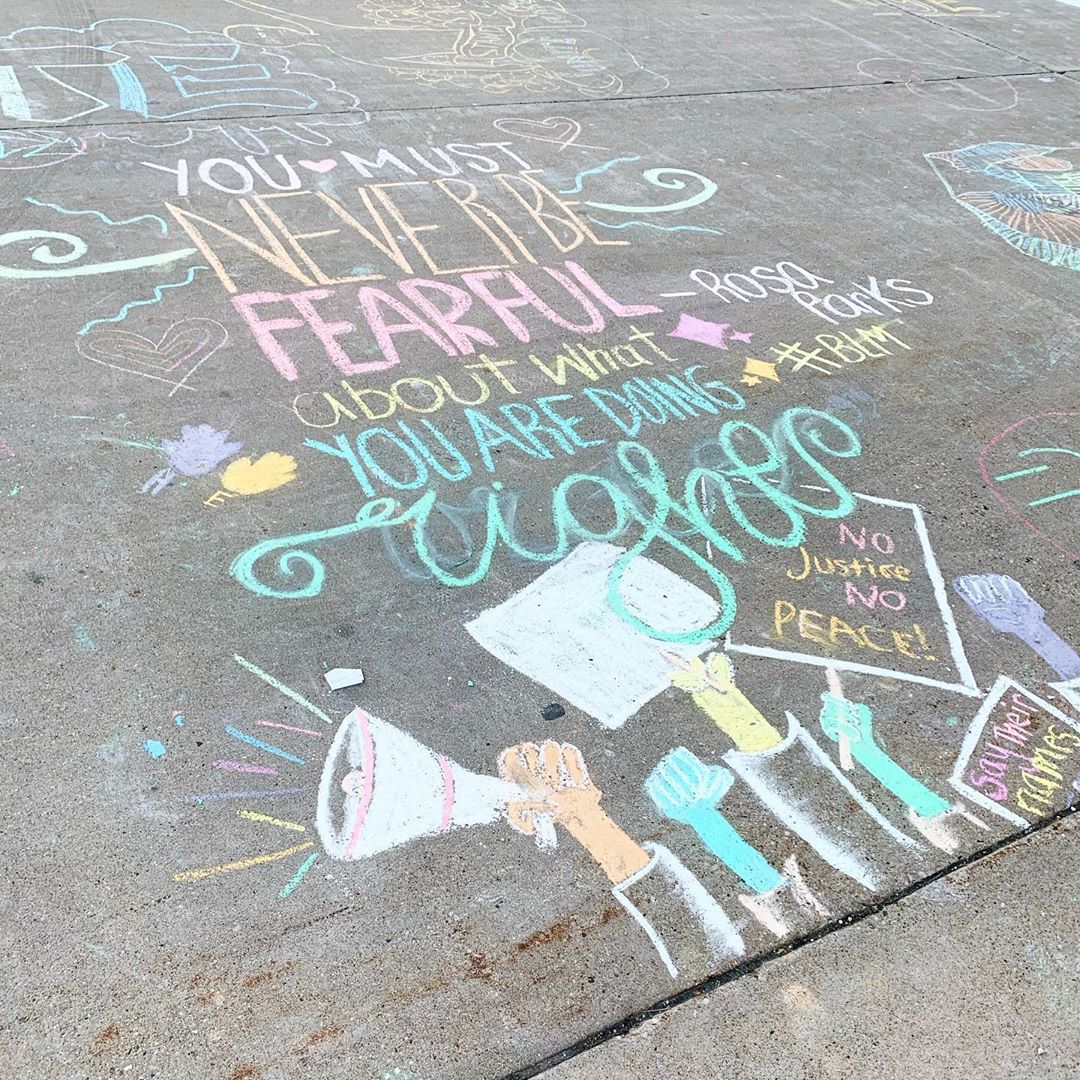 YOU MUST
NEVER BE
FEARFUL
about what
YOU ARE DOING
right
- Rosa
Parks
#BLM
NO
Justice
NO
PEACE!
Say Their
names